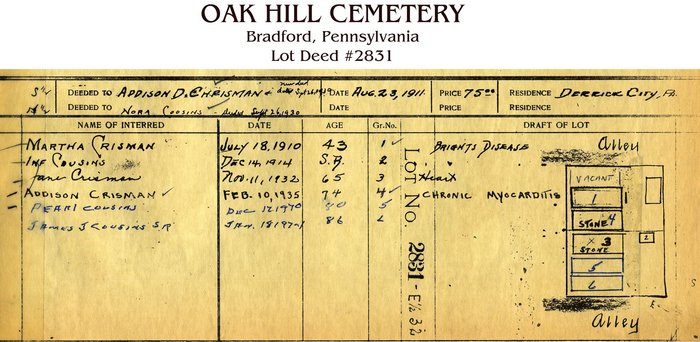 OAK HILL CEMETERY
Bradford, Pennsylvania
Lot Deed #2831
S½ DEEDED TO ADDISON D. CHRISMAN DATE AUG. 23, 1911 PRICE 75.00 RESIDENCE DERRICK CITY, PA.
N½ DEEDED TO NORA COUSINS - deeded Sept 26, 1930 DATE PRICE RESIDENCE
NAME OF INTERRED DATE AGE Gr.No. DRAFT OF LOT
MARTHA CRISMAN JULY 18, 1910 43 1 BRIGHTS DISEASE
INF COUSINS DEC 14, 1914 S.B. 2
Jane Crisman Nov. 11, 1932 65 3 Heart
ADDISON CRISMAN FEB. 10, 1935 74 4 CHRONIC MYOCARDITIS
PEARL COUSINS DEC 1970 5
JAMES J COUSINS SR JAN. 18 197 86 6
LOT NO. 2831 - E½ 32
Alley
VACANT
1
STONE 4
X 3
STONE
2
5
6
E.
S
Alley